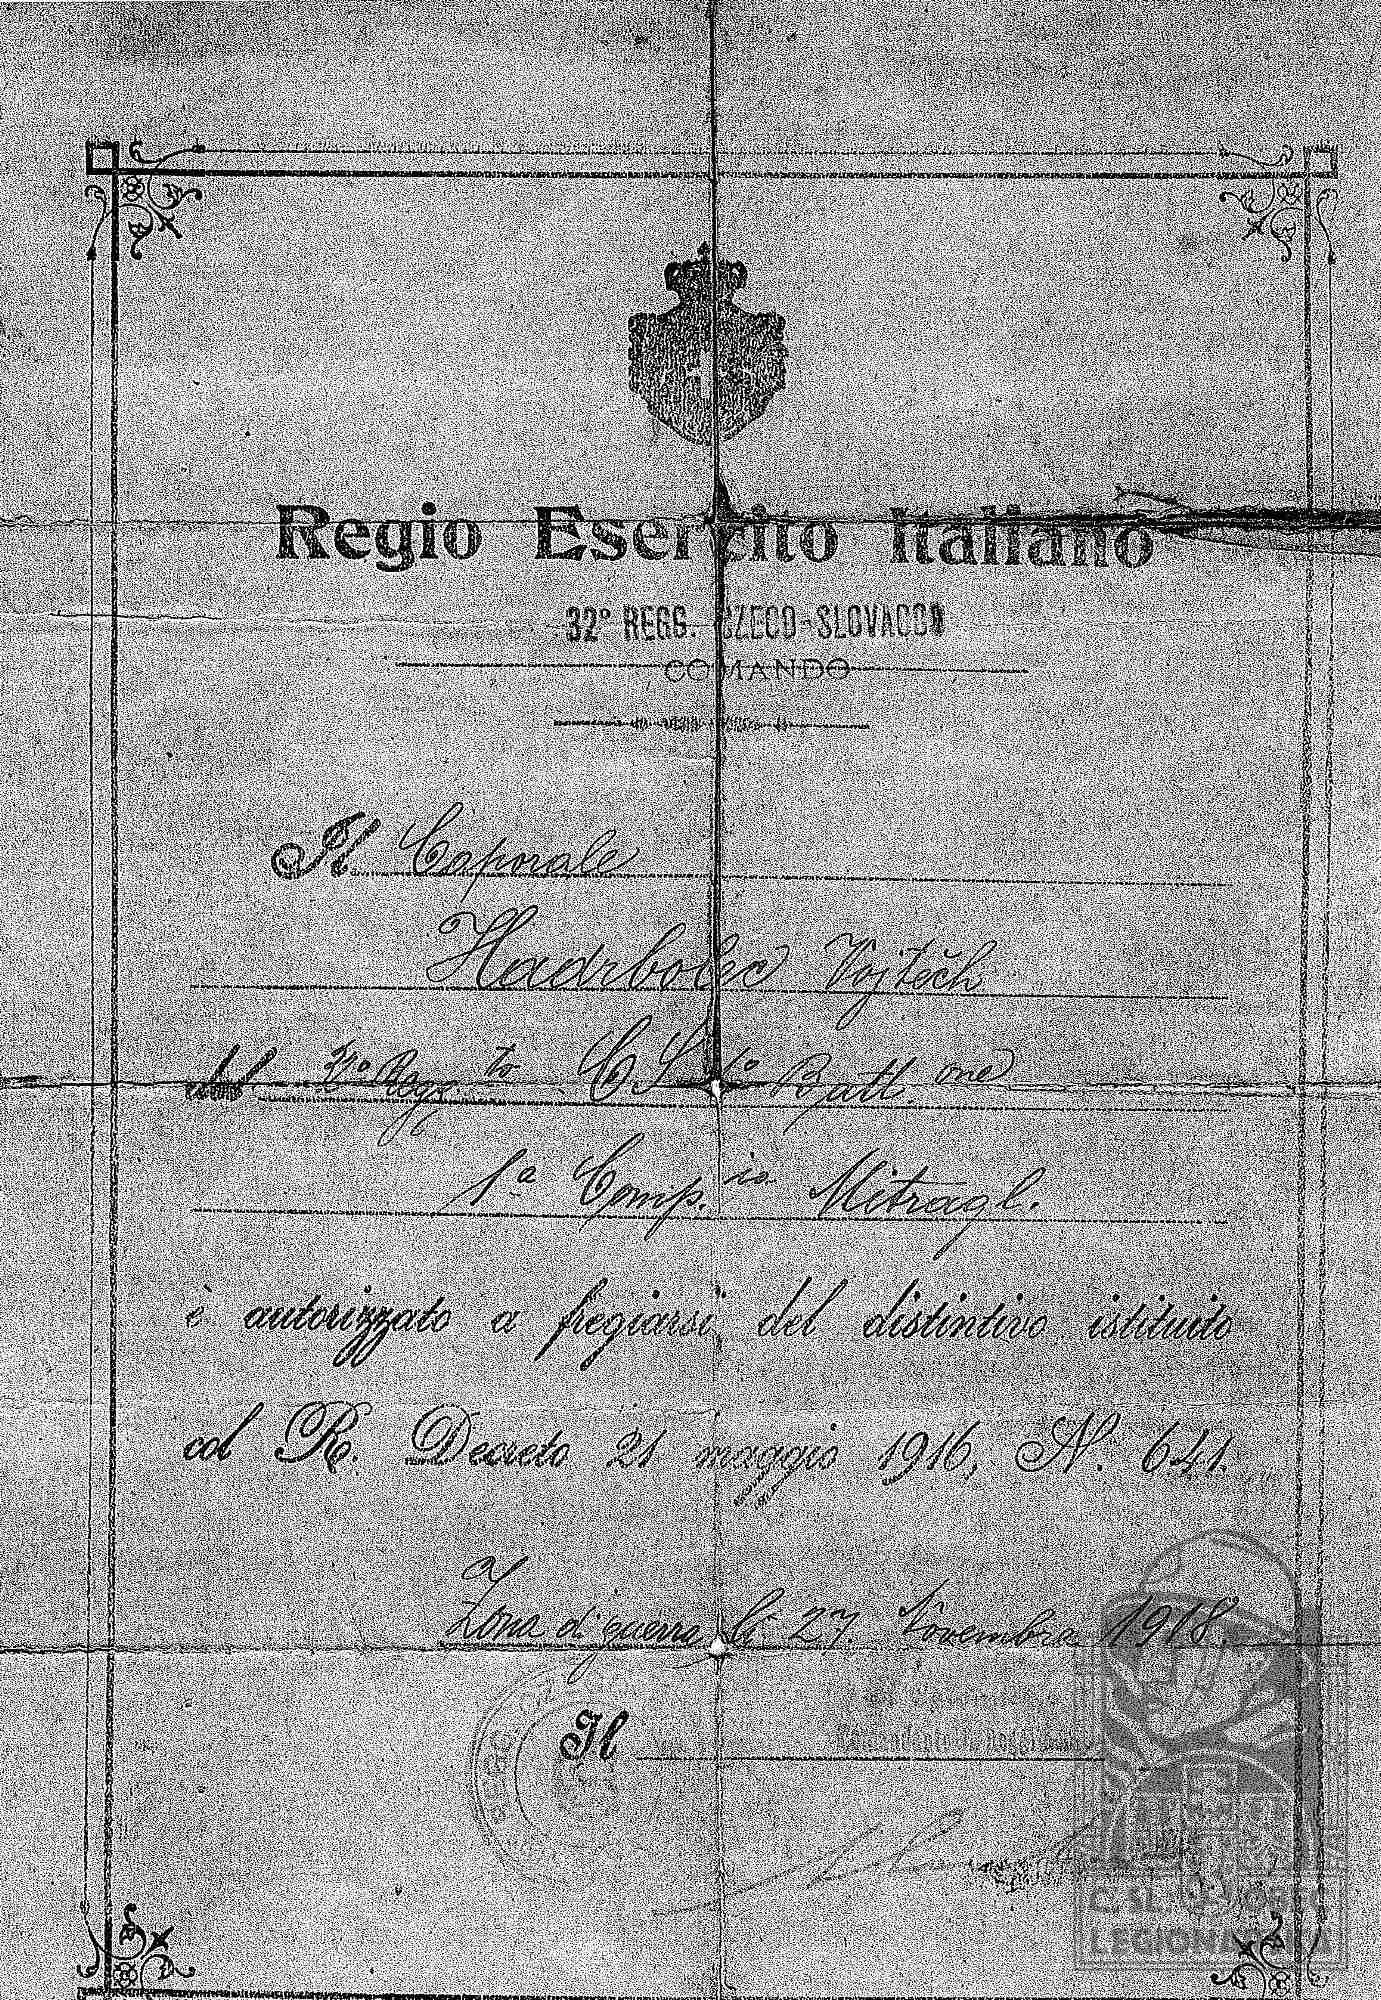 Regio Esercito Italiano
32° REGG. CZECO-SLOVACCO
COMANDO
Il Caporale
Hadrbolec Vojtěch
del 32° Regg.to C S 1° Batt.one
1a Comp.io Mitragl.
è autorizzato a fregiarsi del distintivo istituito
col R. Decreto 21 maggio 1916, N. 641.
Zona di guerra li 27. Novembre 1918.
Il
LEGIONÁŘSKÁ